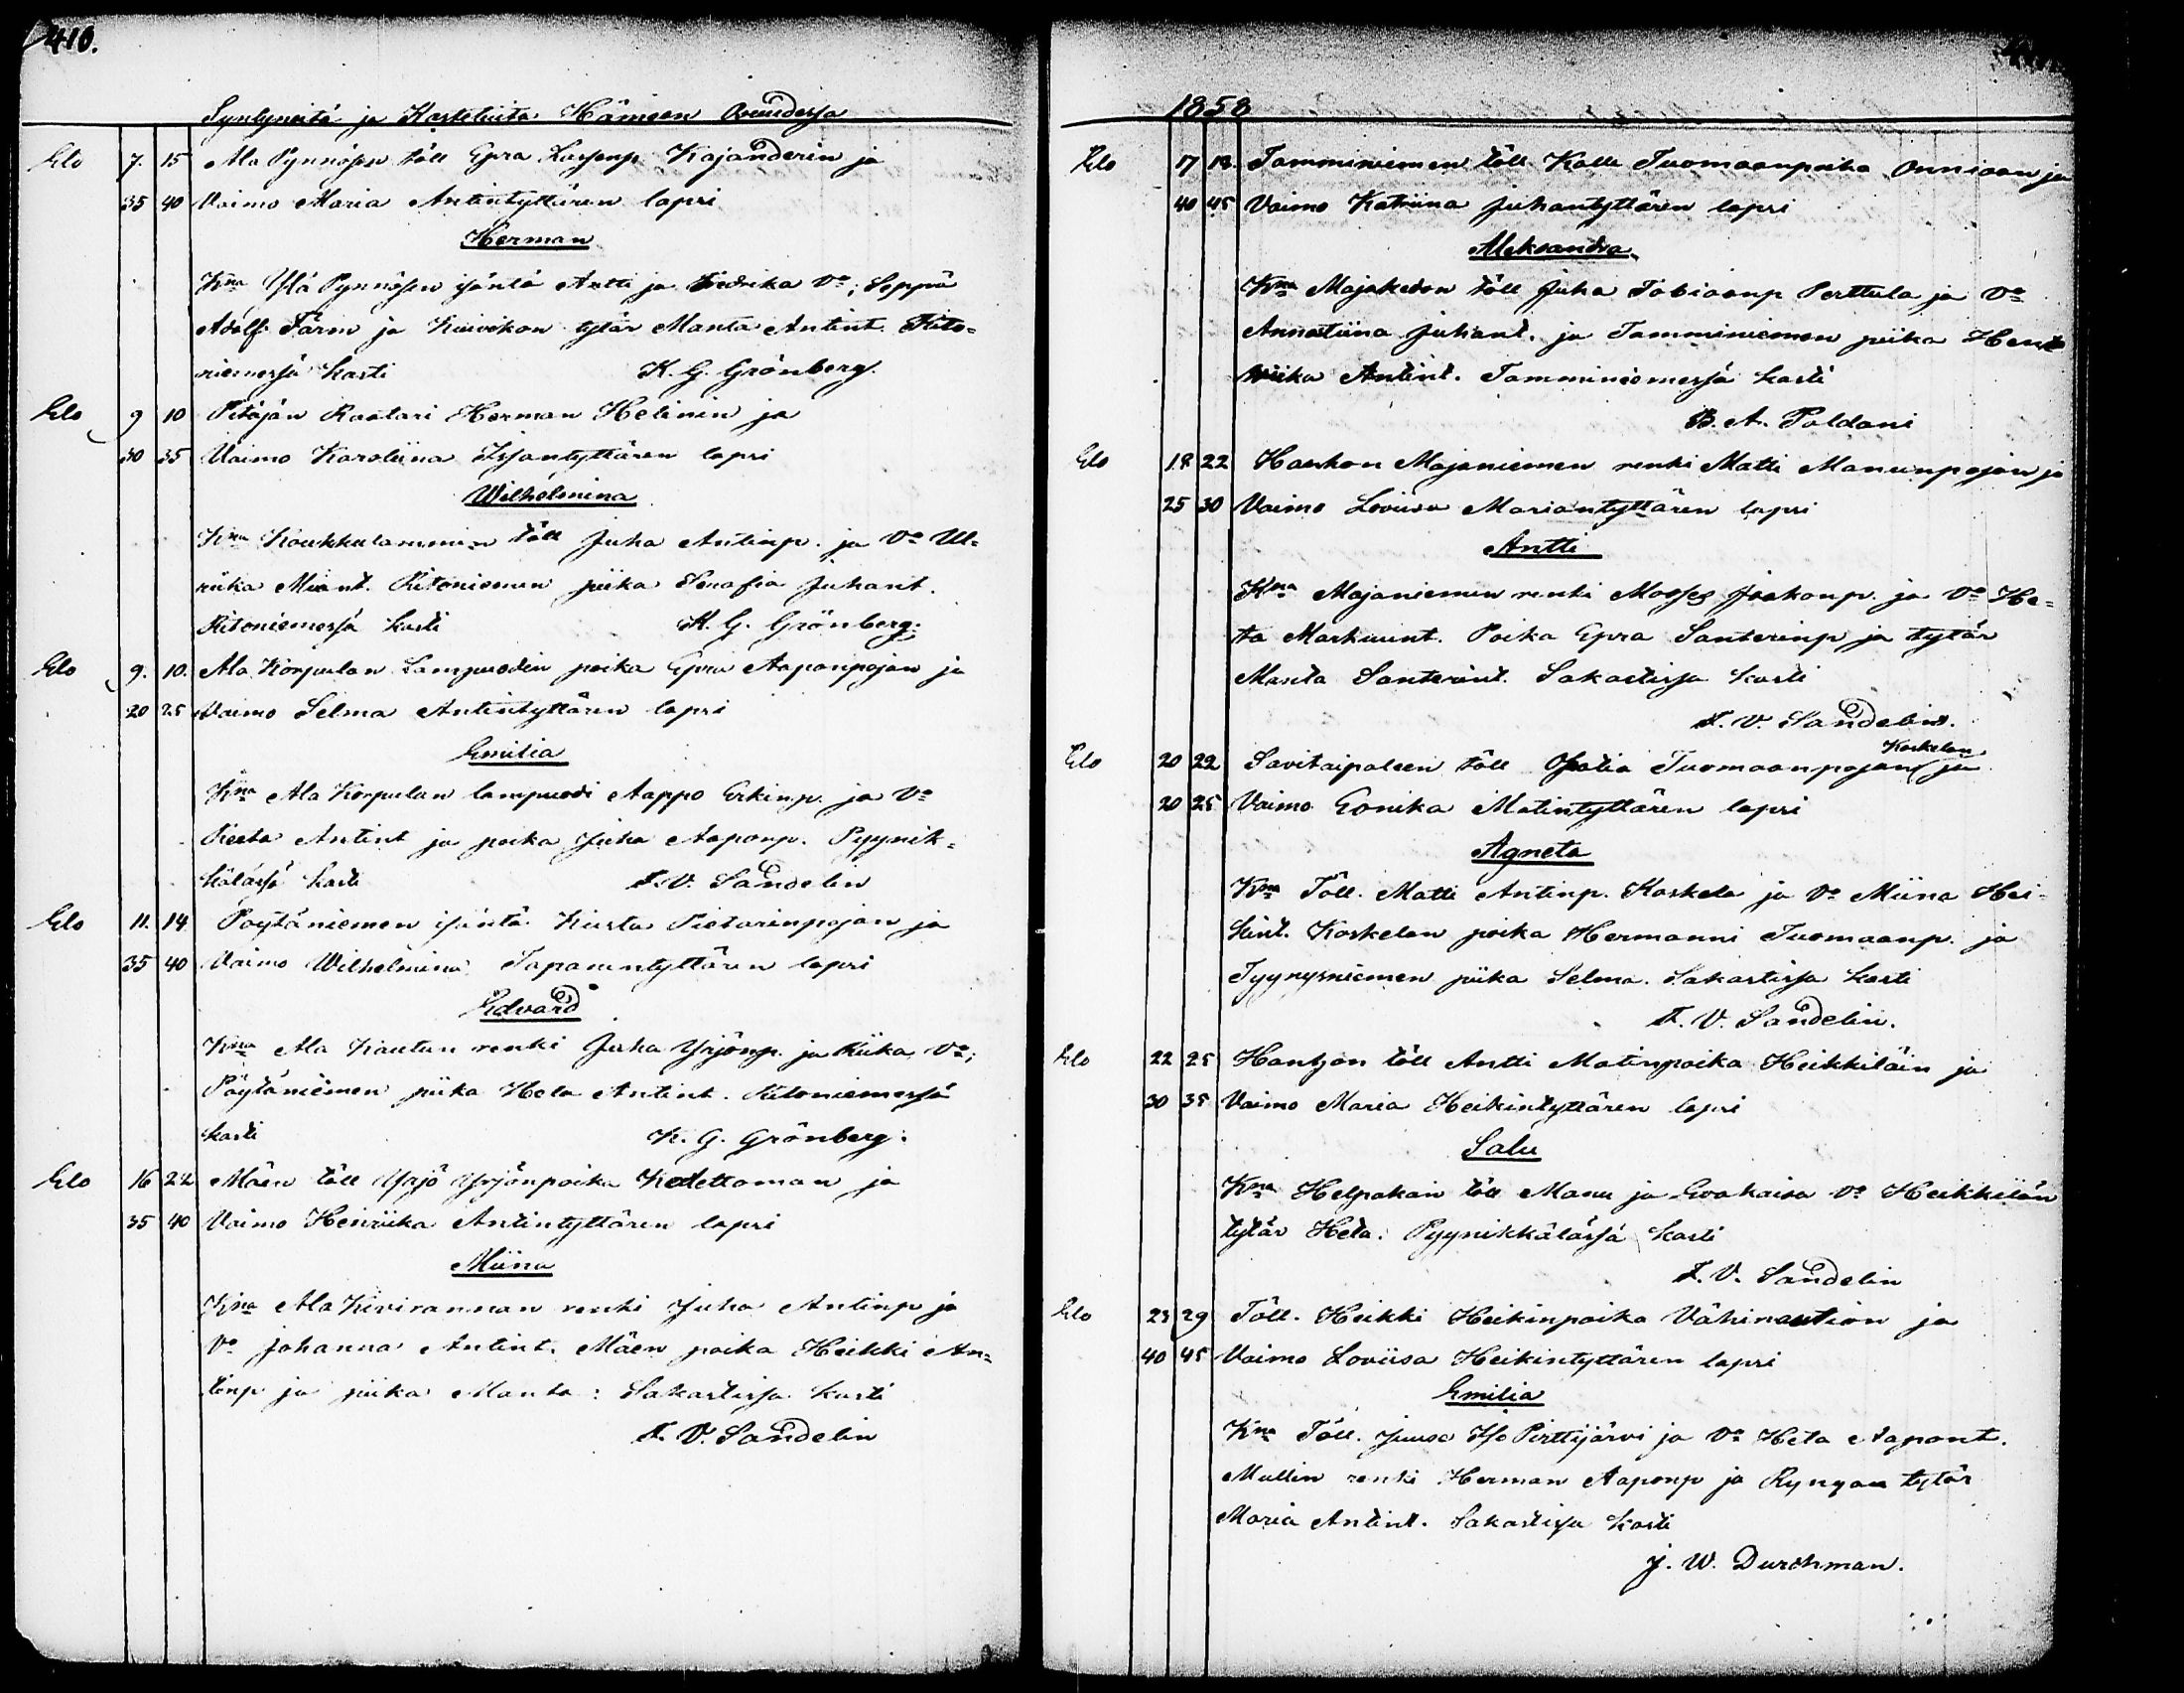 410.
Syntyneitä ja Kastetuita Hämeen
Elo 7. 15 Ala Pynnösen töll Epra Lassenp. Kajanderin ja
35 40 Vaimo Maria Antintyttären lapsi
Herman
Kna Ylä Pynnösen isäntä Antti ja Fredrika Vo; Seppä
Adolf Färm ja tytär Manta Antint.
niemessä kasti K. G. Grönberg.
Elo 9 10 Pitäjän Räätäri Herman Helinin ja
30 35 Vaimo Karoliina tyttären lapsi
Wilhelmina
Kna Koukkulammin töll Juha Antinp. ja Vo Ul=
riika Ritoniemen piika Serafia Juhant.
Ritoniemessä kasti K. G. Grönberg.
Elo 9. 10. Ala Korpulan Lampuodin poika Epra Aaponpojan ja
20 25 Vaimo Selma Antintyttären lapsi
Emilia
Kna Ala Korpulan lampuodi Aappo Erkinp. ja Vo
Antint ja poika Juha Aaponp. Pyynik=
kälässä kasti F. V. Sandelin
Elo 11. 14 Pöytäniemen isäntä Kusta Pietarinpojan ja
35 40 Vaimo Wilhelmina Tapanintyttären lapsi
Edvard
Kna Ala Kautun renki Juha Yrjönp. ja Riika Vo;
Pöytäniemen piika Heta Antint. Ritoniemessä
kasti K. G. Grönberg.
Elo 16 22 Mäen töll Yrjö Yrjönpoika ja
35 40 Vaimo Henriika Antintyttären lapsi
Miina
Kna Ala Kivirannan renki Juha Antinp ja
Vo Johanna Antint. Mäen poika Heikki An=
tinp ja piika Manta: Sakastissa kasti
F. V. Sandelin
1858
Elo 17 18. Tamminiemen töll Kalle Tuomaanpoika ja
40 45 Vaimo Katriina Juhantyttären lapsi
Aleksandra
Kna Majakedon töll Juha Tobiaanp Perttula ja Vo
Annastiina Juhant. ja Tamminiemen piika Hen
riika Antint. Tamminiemessä kasti
B. A. Paldani
Elo 18 22 Haukon Majaniemen renki Matti Manunpojan ja
25 30 Vaimo Loviisa Mariantyttären lapsi
Antti
Kna Majaniemen renki Mooses Jaakonp. ja Vo He=
ta Markuunt. Poika Epra Santerinp ja tytär
Manta Santerint. Sakastissa kasti
F. V. Sandelin.
Elo 20 22 Savitaipaleen töll Tuomaanpojan Koskelan ja
20 25 Vaimo Eonika Matintyttären lapsi
Agneta
Kna Töll. Matti Antinp. Koskela ja Vo Miina Hei=
kint. Koskelan poika Hermanni Tuomaanp. ja
Tyyrysniemen piika Selma. Sakastissa kasti
F. V. Sandelin.
Elo 22 25 töll Antti Matinpoika Heikkilän ja
30 35 Vaimo Maria Heikintyttären lapsi
Salu
Kna Helpakan töll Manu ja Evakaisa Vo Heikkilän
tytär Heta. Pyynikkälässä kasti
F. V. Sandelin
Elo 23 29 Töll. Heikki Heikinpoika Vähimaution ja
40 45 Vaimo Loviisa Heikintyttären lapsi
Emilia
Kna Töll. Juuse Iso Perttijärvi ja Vo Heta Aapont.
Mullin renki Herman Aaponp ja tytär
Maria Antint. Sakastissa kasti
J. W. Durchman.